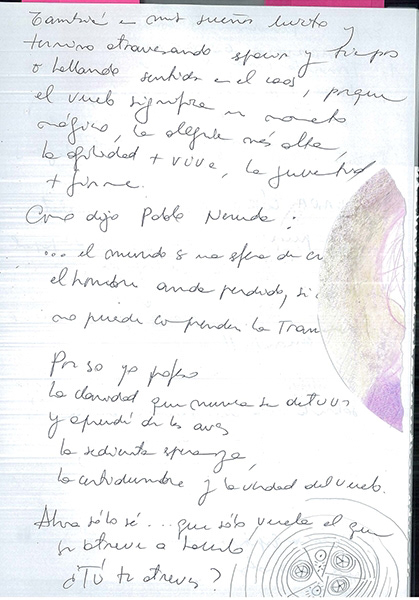 También en mis sueños levito y
termino atravesando espacio y tiempo
o hallando sentido en el caos, porque
el vuelo significa un momento
mágico, la alegría más alta,
la agilidad + viva, la juventud
+ firme.
Como dijo Pablo Neruda:
... el mundo es una esfera de cri
el hombre anda perdido, si
no puede comprender la tran
Por eso yo profeso
la claridad que nunca se detuvo
y aprendí de las aves
la sedienta esperanza,
la certidumbre y la verdad del vuelo.
Ahora sólo sé... que sólo vuela el que
se atreve a hacerlo
¿Tú te atreves?